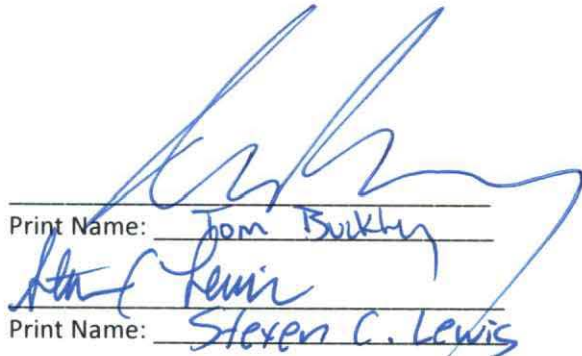 Print Name: Tom Buckley
Steven C Lewis
Print Name: Steven C. Lewis